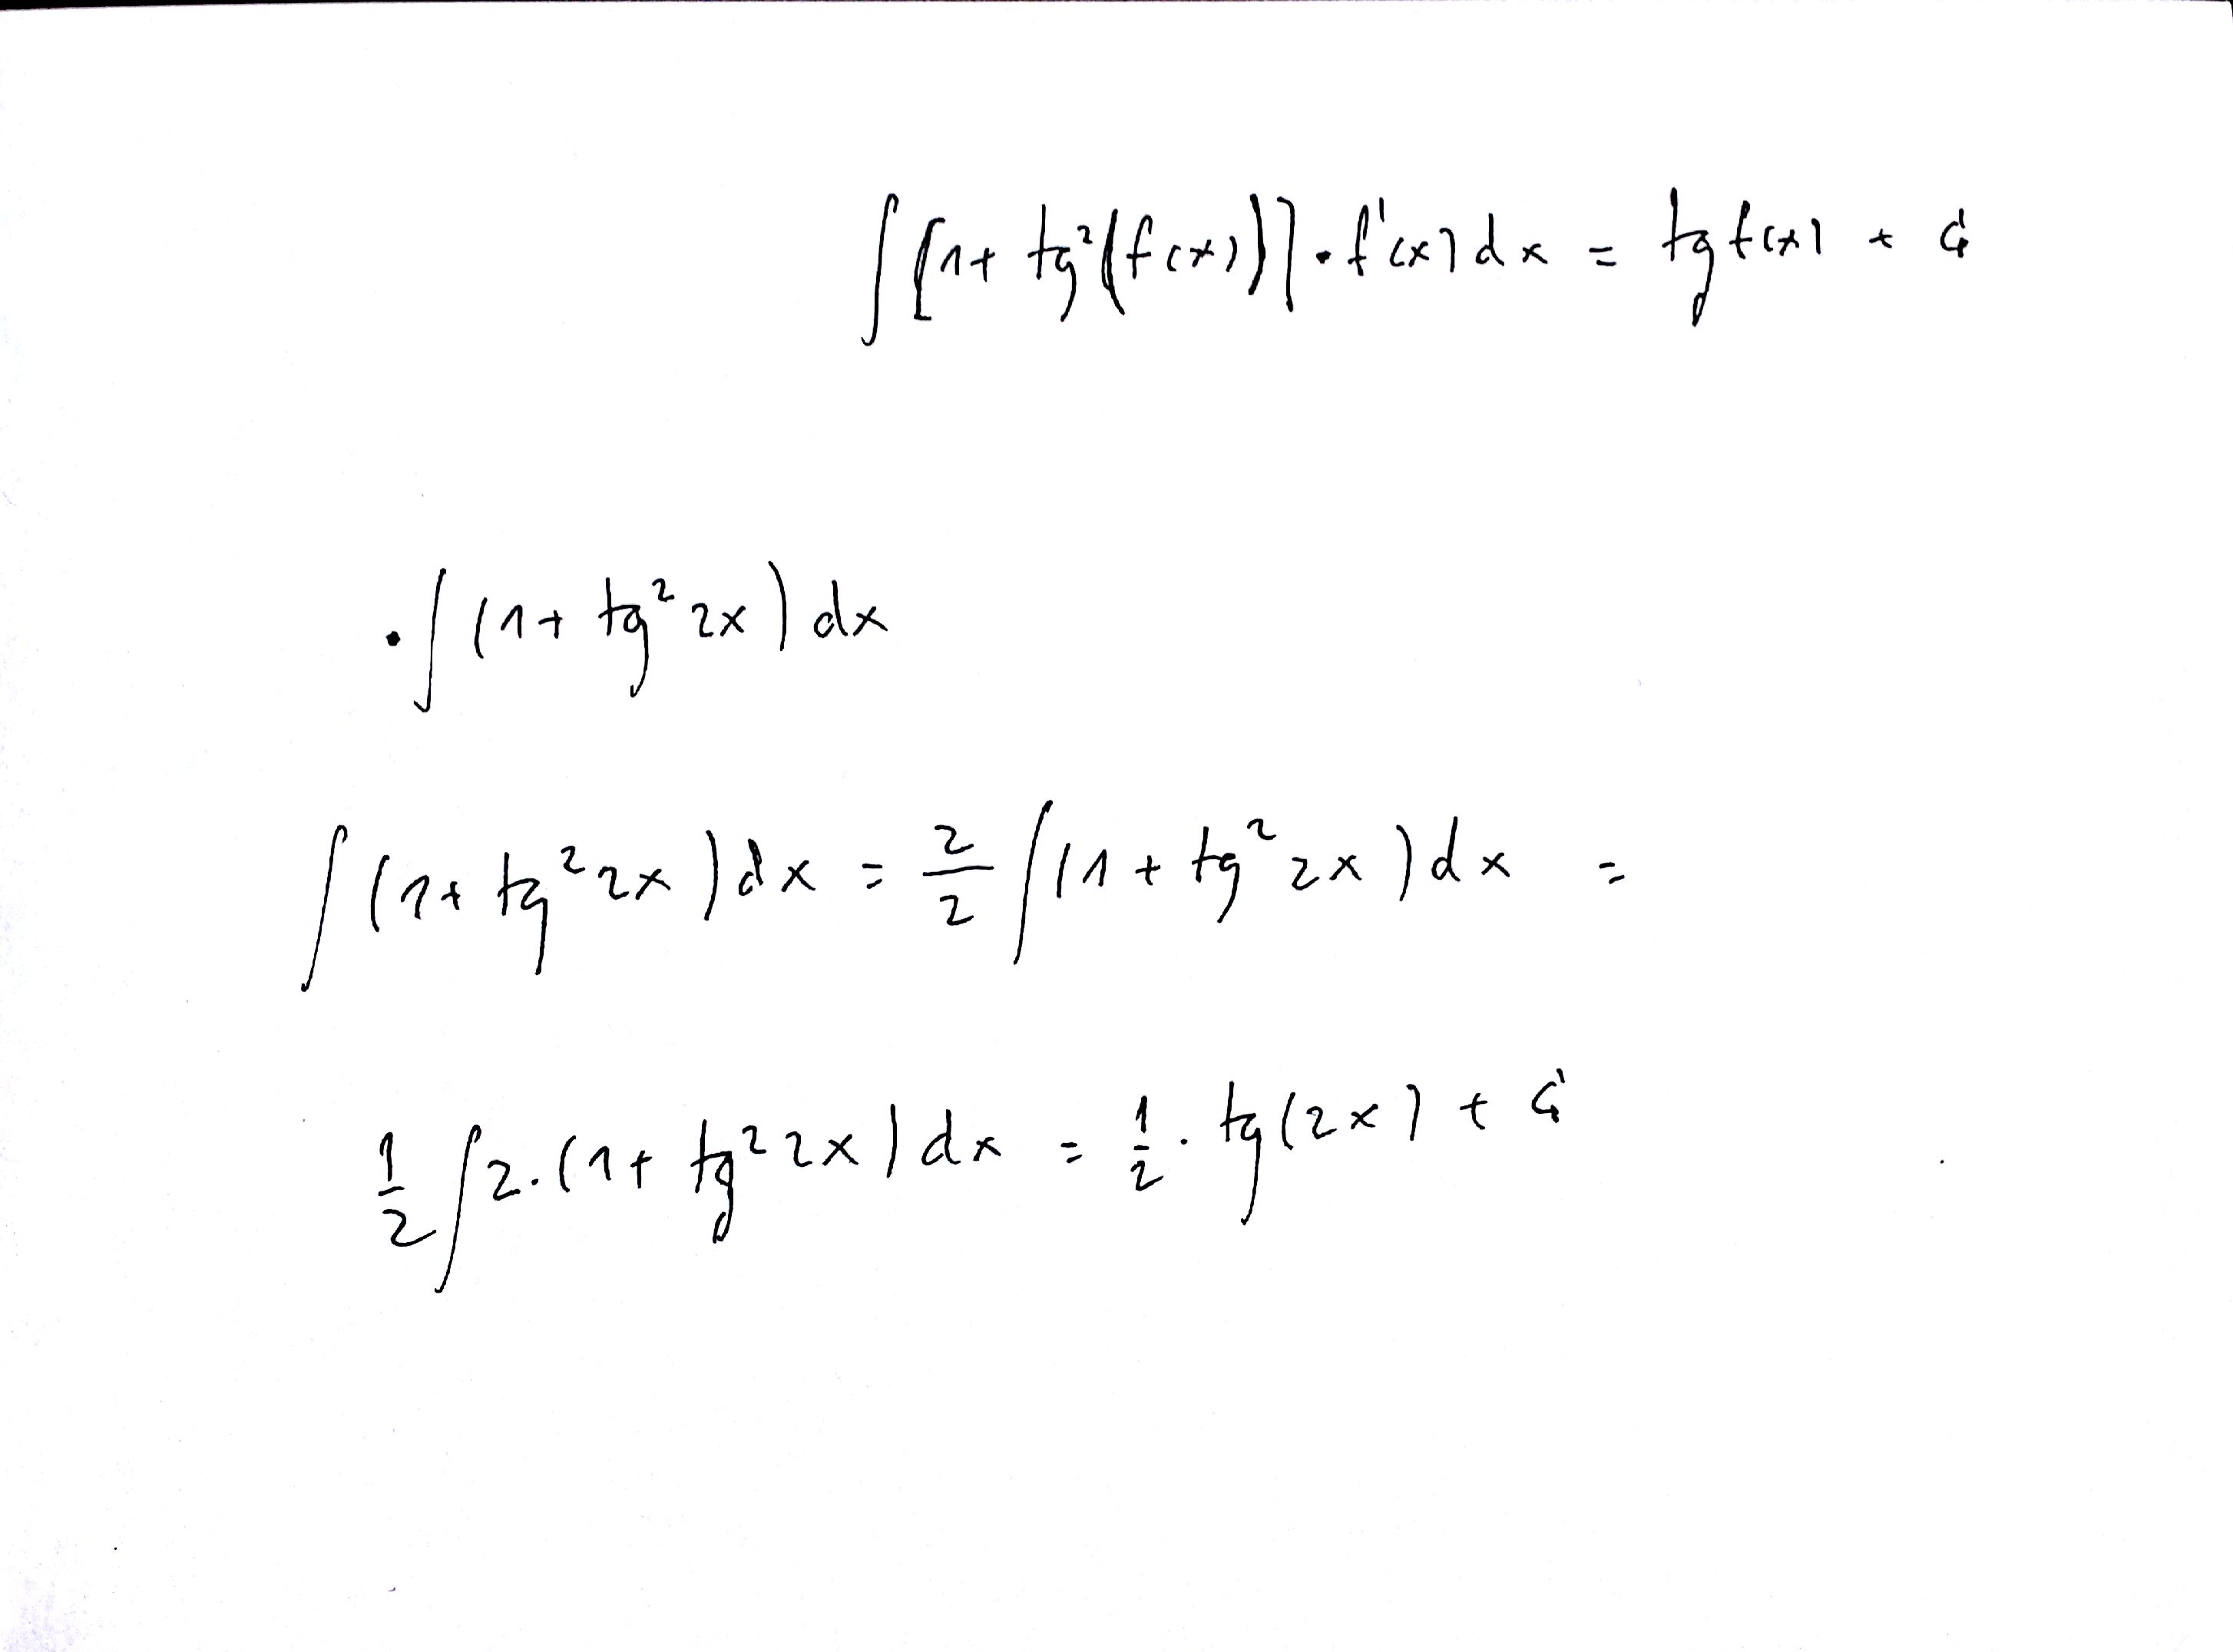 ∫[1+ tg²(f(x))]·f'(x)dx = tg f(x) + C
· ∫(1+ tg² 2x)dx
∫(1+ tg² 2x)dx = 2/2 ∫(1+ tg² 2x)dx =
1/2 ∫2·(1+ tg² 2x)dx = 1/2 · tg(2x) + C